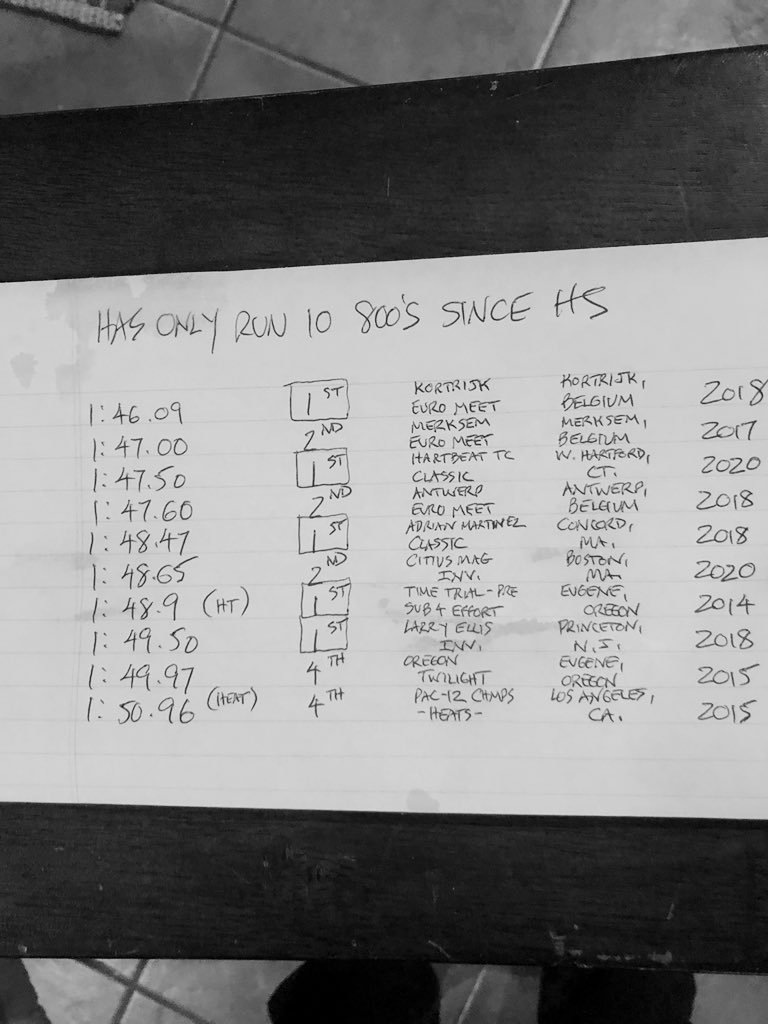 HAS ONLY RUN 10 800'S SINCE HS
1:46.09 1ST KORTRIJK EURO MEET KORTRIJK, BELGIUM 2018
1:47.00 2ND MERKSEM EURO MEET MERKSEM, BELGIUM 2017
1:47.50 1ST HARTBEAT TC CLASSIC W. HARTFORD, CT. 2020
1:47.60 2ND ANTWERP EURO MEET ANTWERP, BELGIUM 2018
1:48.47 1ST ADRIAN MARTINEZ CLASSIC CONCORD, MA. 2018
1:48.65 2ND CITIUS MAG INV. BOSTON, MA 2020
1:48.9 (HT) 1ST TIME TRIAL-PRE SUB 4 EFFORT EUGENE, OREGON 2014
1:49.50 1ST LARRY ELLIS INV. PRINCETON, N.J. 2018
1:49.97 4TH OREGON TWILIGHT EUGENE, OREGON 2015
1:50.96 (HEAT) 4TH PAC-12 CHMPS -HEATS- LOS ANGELES, CA. 2015